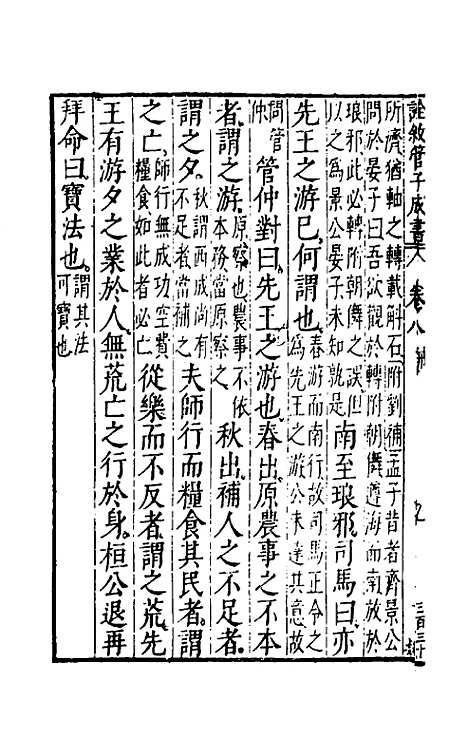 詮敘管子成書 卷八 九 三百三十
所濟猶軸之轉載斛石附劉補孟子昔者齊景公
問於晏子曰吾欲觀於轉附朝儛遵海而南放於
琅邪此必轉附朝儛之誤但
以之爲景公晏子未知孰是
南至琅邪司馬曰亦
先王之游已何謂也
春游而南行故司馬正令之
爲先王之游公未達其意故
問管
仲
管仲對曰先王之游也春出原農事之不本
者謂之游
原察也農事不依
本務當原察之
秋出補人之不足者
謂之夕
秋謂西成尚有
不足者當補之
夫師行而糧食其民者謂
之亡
師行無成功空費
糧食如此者必亡
從樂而不反者謂之荒先
王有游夕之業於人無荒亡之行於身桓公退再
拜命曰寶法也
謂其法
可寶也